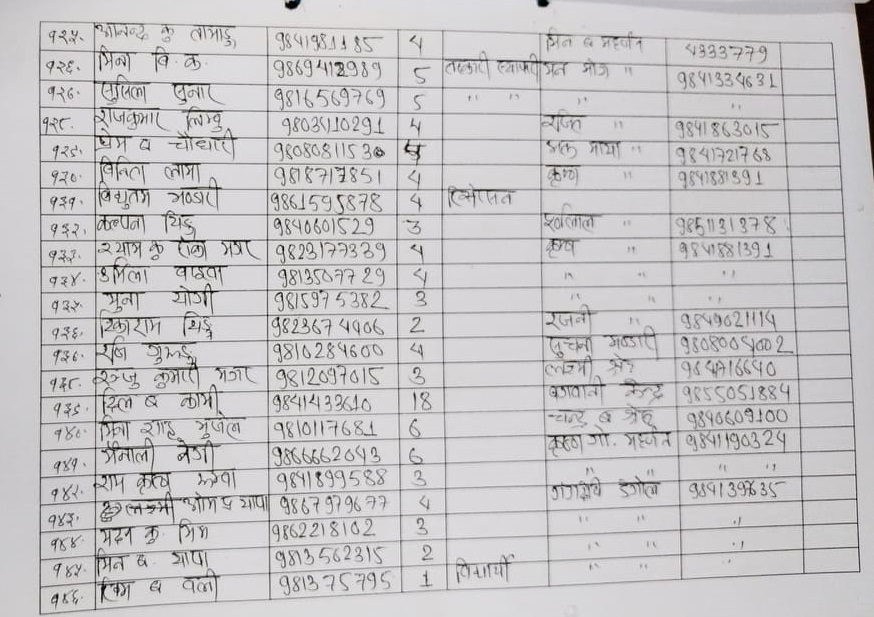 १२५. आनन्द कु लामाडु 9841981185 4 मिन ब महर्जन 4333779
१२६. मिना वि. क. 9869412989 5 तरकारी व्यापारी मन मोज " 9841334631
१२७. सुसिला सुनार 9816569769 5 " " " "
१२८. राजकुमार लिम्बु 9803410291 4 रजि " 9841863015
१२९. प्रेम ब चौधारी 9808081153 " 9841721768
१३०. विनिता लामा 9818717851 4 कृष्ण " 9841881391
१३१. भण्डारी 9861595878 4
१३२. कल्पना थिङ्ग 9840601529 3 " 9851131378
१३३. श्याम कु रोका मगर 9823177339 4 कृष्ण " 9841881391
१३४. उर्मिला 9813507729 4 " " "
१३५. मुना योगी 9815975382 3 " " "
१३६. टिकाराम थिङ्ग 9823674406 2 रजनी " 9849021114
१३७. रवि गुरुङ 9810284600 4 सुचना भण्डारी 9808004002
१३८. रुजु कुमारी मगर 9812097015 3 लक्ष्मी श्रेष्ठ 964716640
१३९. दिल ब कामी 9841433610 18 9855051884
१४०. मिना शाह 9810117681 6 चन्द्र ब श्रेष्ठ 9840609100
१४१. मैनाली नेगी 9866662043 6 कृष्ण गो. महर्जन 9841190324
१४२. राम कृष्ण 9841899588 3 " " " "
१४३. लक्ष्मी ओम थापा 9867979677 4 डंगोल 984139635
१४४. मदन कु. मिश्र 9862218102 3 " " "
१४५. मिन ब. थापा 9813562315 2 " " "
१४६. टिका ब वली 981375795 1 विद्यार्थी " " "